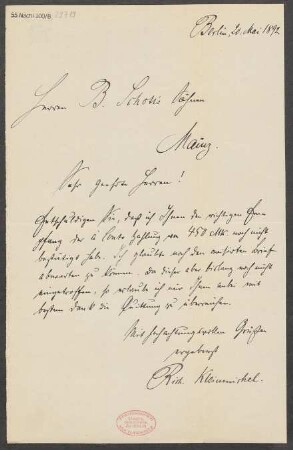 55 Nachl 100/B,
Berlin, 20. Mai 1892.
Herren B. Schott's Söhnen
Mainz.
Sehr geehrte Herren!
Entschuldigen Sie, daß ich Ihnen den richtigen Em-
pfang der à Conto Zahlung von 450 Mk. noch nicht
bestätigt habe. Ich glaubte noch den avisirten Brief
abwarten zu können, da dieser aber bislang noch nicht
eingetroffen, so erlaube ich mir Ihnen anbei mit
bestem Dank die Quittung zu überreichen.
Mit hochachtungsvollen Grüßen
ergebenst
Rich. Kleinmichel.